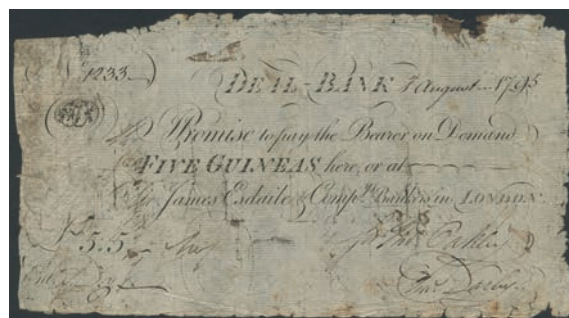 1233
DEAL-BANK August 1795
Promise to pay the Bearer on Demand
FIVE GUINEAS here, or at
Sir James Esdaile & Comp.y Bankers in LONDON.
£5.5
Tho.s Oakley